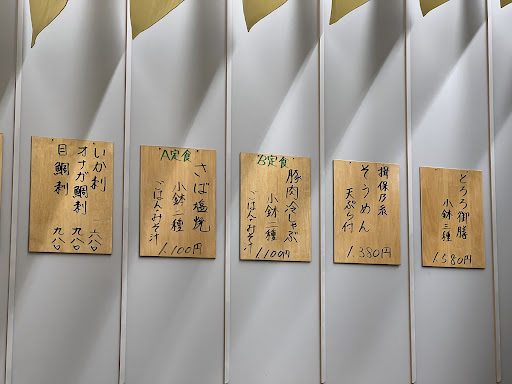 いか刺 六八〇
オナガ鯛刺 九八〇
目鯛刺 九八〇
A定食
さば塩焼
小鉢二種
ごはんみそ汁
1,100円
B定食
豚肉冷しゃぶ
小鉢二種
ごはんみそ汁
1,100円
揖保乃糸
そうめん
天ぷら付
1,380円
とろろ御膳
小鉢三種
1,580円